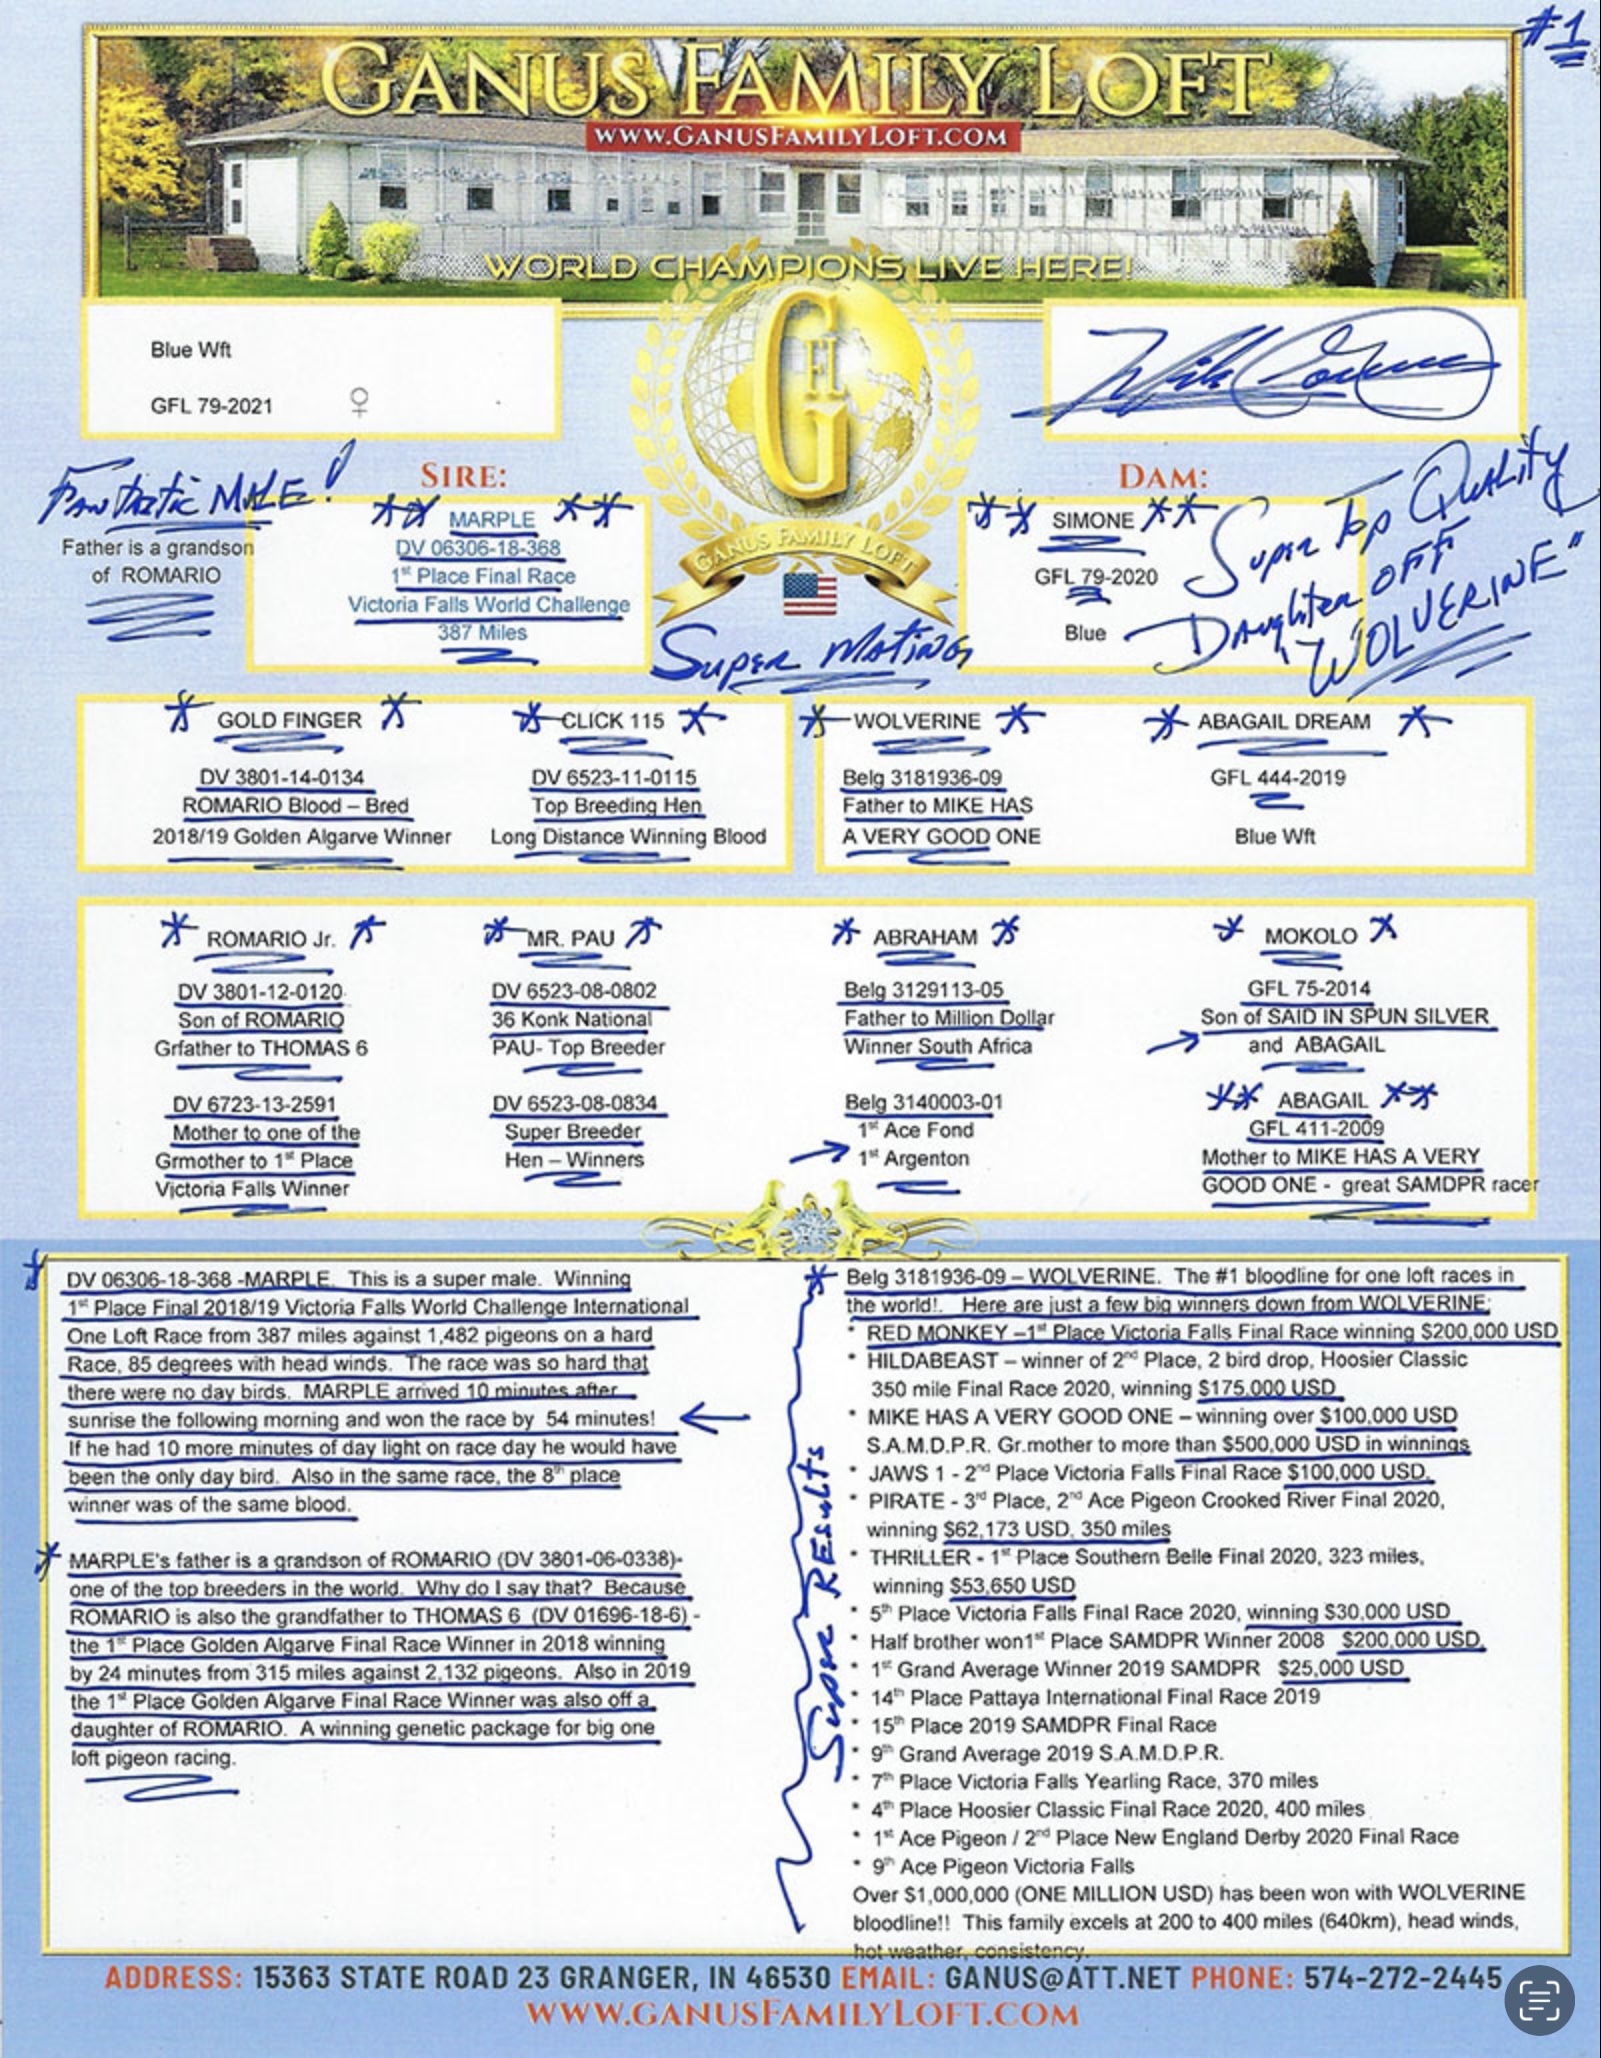 #1
GANUS FAMILY LOFT
WWW.GANUSFAMILYLOFT.COM
WORLD CHAMPIONS LIVE HERE!
Blue Wft
GFL 79-2021 ♀
GFL
GANUS FAMILY LOFT
FANTASTIC MALE!
Father is a grandson
of ROMARIO
SIRE:
** MARPLE **
DV 06306-18-368
1st Place Final Race
Victoria Falls World Challenge
387 Miles
SUPER MATING
DAM:
** SIMONE **
GFL 79-2020
Blue
Super Top Quality
Daughter OFF
"WOLVERINE"
* GOLD FINGER *
DV 3801-14-0134
ROMARIO Blood – Bred
2018/19 Golden Algarve Winner
* CLICK 115 *
DV 6523-11-0115
Top Breeding Hen
Long Distance Winning Blood
* WOLVERINE *
Belg 3181936-09
Father to MIKE HAS
A VERY GOOD ONE
* ABAGAIL DREAM *
GFL 444-2019
Blue Wft
* ROMARIO Jr. *
DV 3801-12-0120
Son of ROMARIO
Grfather to THOMAS 6
DV 6723-13-2591
Mother to one of the
Grmother to 1st Place
Victoria Falls Winner
* MR. PAU *
DV 6523-08-0802
36 Konk National
PAU- Top Breeder
DV 6523-08-0834
Super Breeder
Hen – Winners
* ABRAHAM *
Belg 3129113-05
Father to Million Dollar
Winner South Africa
Belg 3140003-01
1st Ace Fond
1st Argenton
* MOKOLO *
GFL 75-2014
Son of SAID IN SPUN SILVER
and ABAGAIL
** ABAGAIL **
GFL 411-2009
Mother to MIKE HAS A VERY
GOOD ONE - great SAMDPR racer
* DV 06306-18-368 -MARPLE. This is a super male. Winning
1st Place Final 2018/19 Victoria Falls World Challenge International
One Loft Race from 387 miles against 1,482 pigeons on a hard
Race, 85 degrees with head winds. The race was so hard that
there were no day birds. MARPLE arrived 10 minutes after
sunrise the following morning and won the race by 54 minutes!
If he had 10 more minutes of day light on race day he would have
been the only day bird. Also in the same race, the 8th place
winner was of the same blood.
* MARPLE's father is a grandson of ROMARIO (DV 3801-06-0338)-
one of the top breeders in the world. Why do I say that? Because
ROMARIO is also the grandfather to THOMAS 6 (DV 01696-18-6) -
the 1st Place Golden Algarve Final Race Winner in 2018 winning
by 24 minutes from 315 miles against 2,132 pigeons. Also in 2019
the 1st Place Golden Algarve Final Race Winner was also off a
daughter of ROMARIO. A winning genetic package for big one
loft pigeon racing.
Super Results
* Belg 3181936-09 – WOLVERINE. The #1 bloodline for one loft races in
the world!. Here are just a few big winners down from WOLVERINE:
* RED MONKEY –1st Place Victoria Falls Final Race winning $200,000 USD
* HILDABEAST – winner of 2nd Place, 2 bird drop, Hoosier Classic
350 mile Final Race 2020, winning $175,000 USD
* MIKE HAS A VERY GOOD ONE – winning over $100,000 USD
S.A.M.D.P.R. Gr.mother to more than $500,000 USD in winnings
* JAWS 1 - 2nd Place Victoria Falls Final Race $100,000 USD.
* PIRATE - 3rd Place, 2nd Ace Pigeon Crooked River Final 2020,
winning $62,173 USD, 350 miles
* THRILLER - 1st Place Southern Belle Final 2020, 323 miles,
winning $53,650 USD
* 5th Place Victoria Falls Final Race 2020, winning $30,000 USD
* Half brother won1st Place SAMDPR Winner 2008 $200,000 USD
* 1st Grand Average Winner 2019 SAMDPR $25,000 USD
* 14th Place Pattaya International Final Race 2019
* 15th Place 2019 SAMDPR Final Race
* 9th Grand Average 2019 S.A.M.D.P.R.
* 7th Place Victoria Falls Yearling Race, 370 miles
* 4th Place Hoosier Classic Final Race 2020, 400 miles
* 1st Ace Pigeon / 2nd Place New England Derby 2020 Final Race
* 9th Ace Pigeon Victoria Falls
Over $1,000,000 (ONE MILLION USD) has been won with WOLVERINE
bloodline!! This family excels at 200 to 400 miles (640km), head winds,
hot weather, consistency.
ADDRESS: 15363 STATE ROAD 23 GRANGER, IN 46530 EMAIL: GANUS@ATT.NET PHONE: 574-272-2445
WWW.GANUSFAMILYLOFT.COM